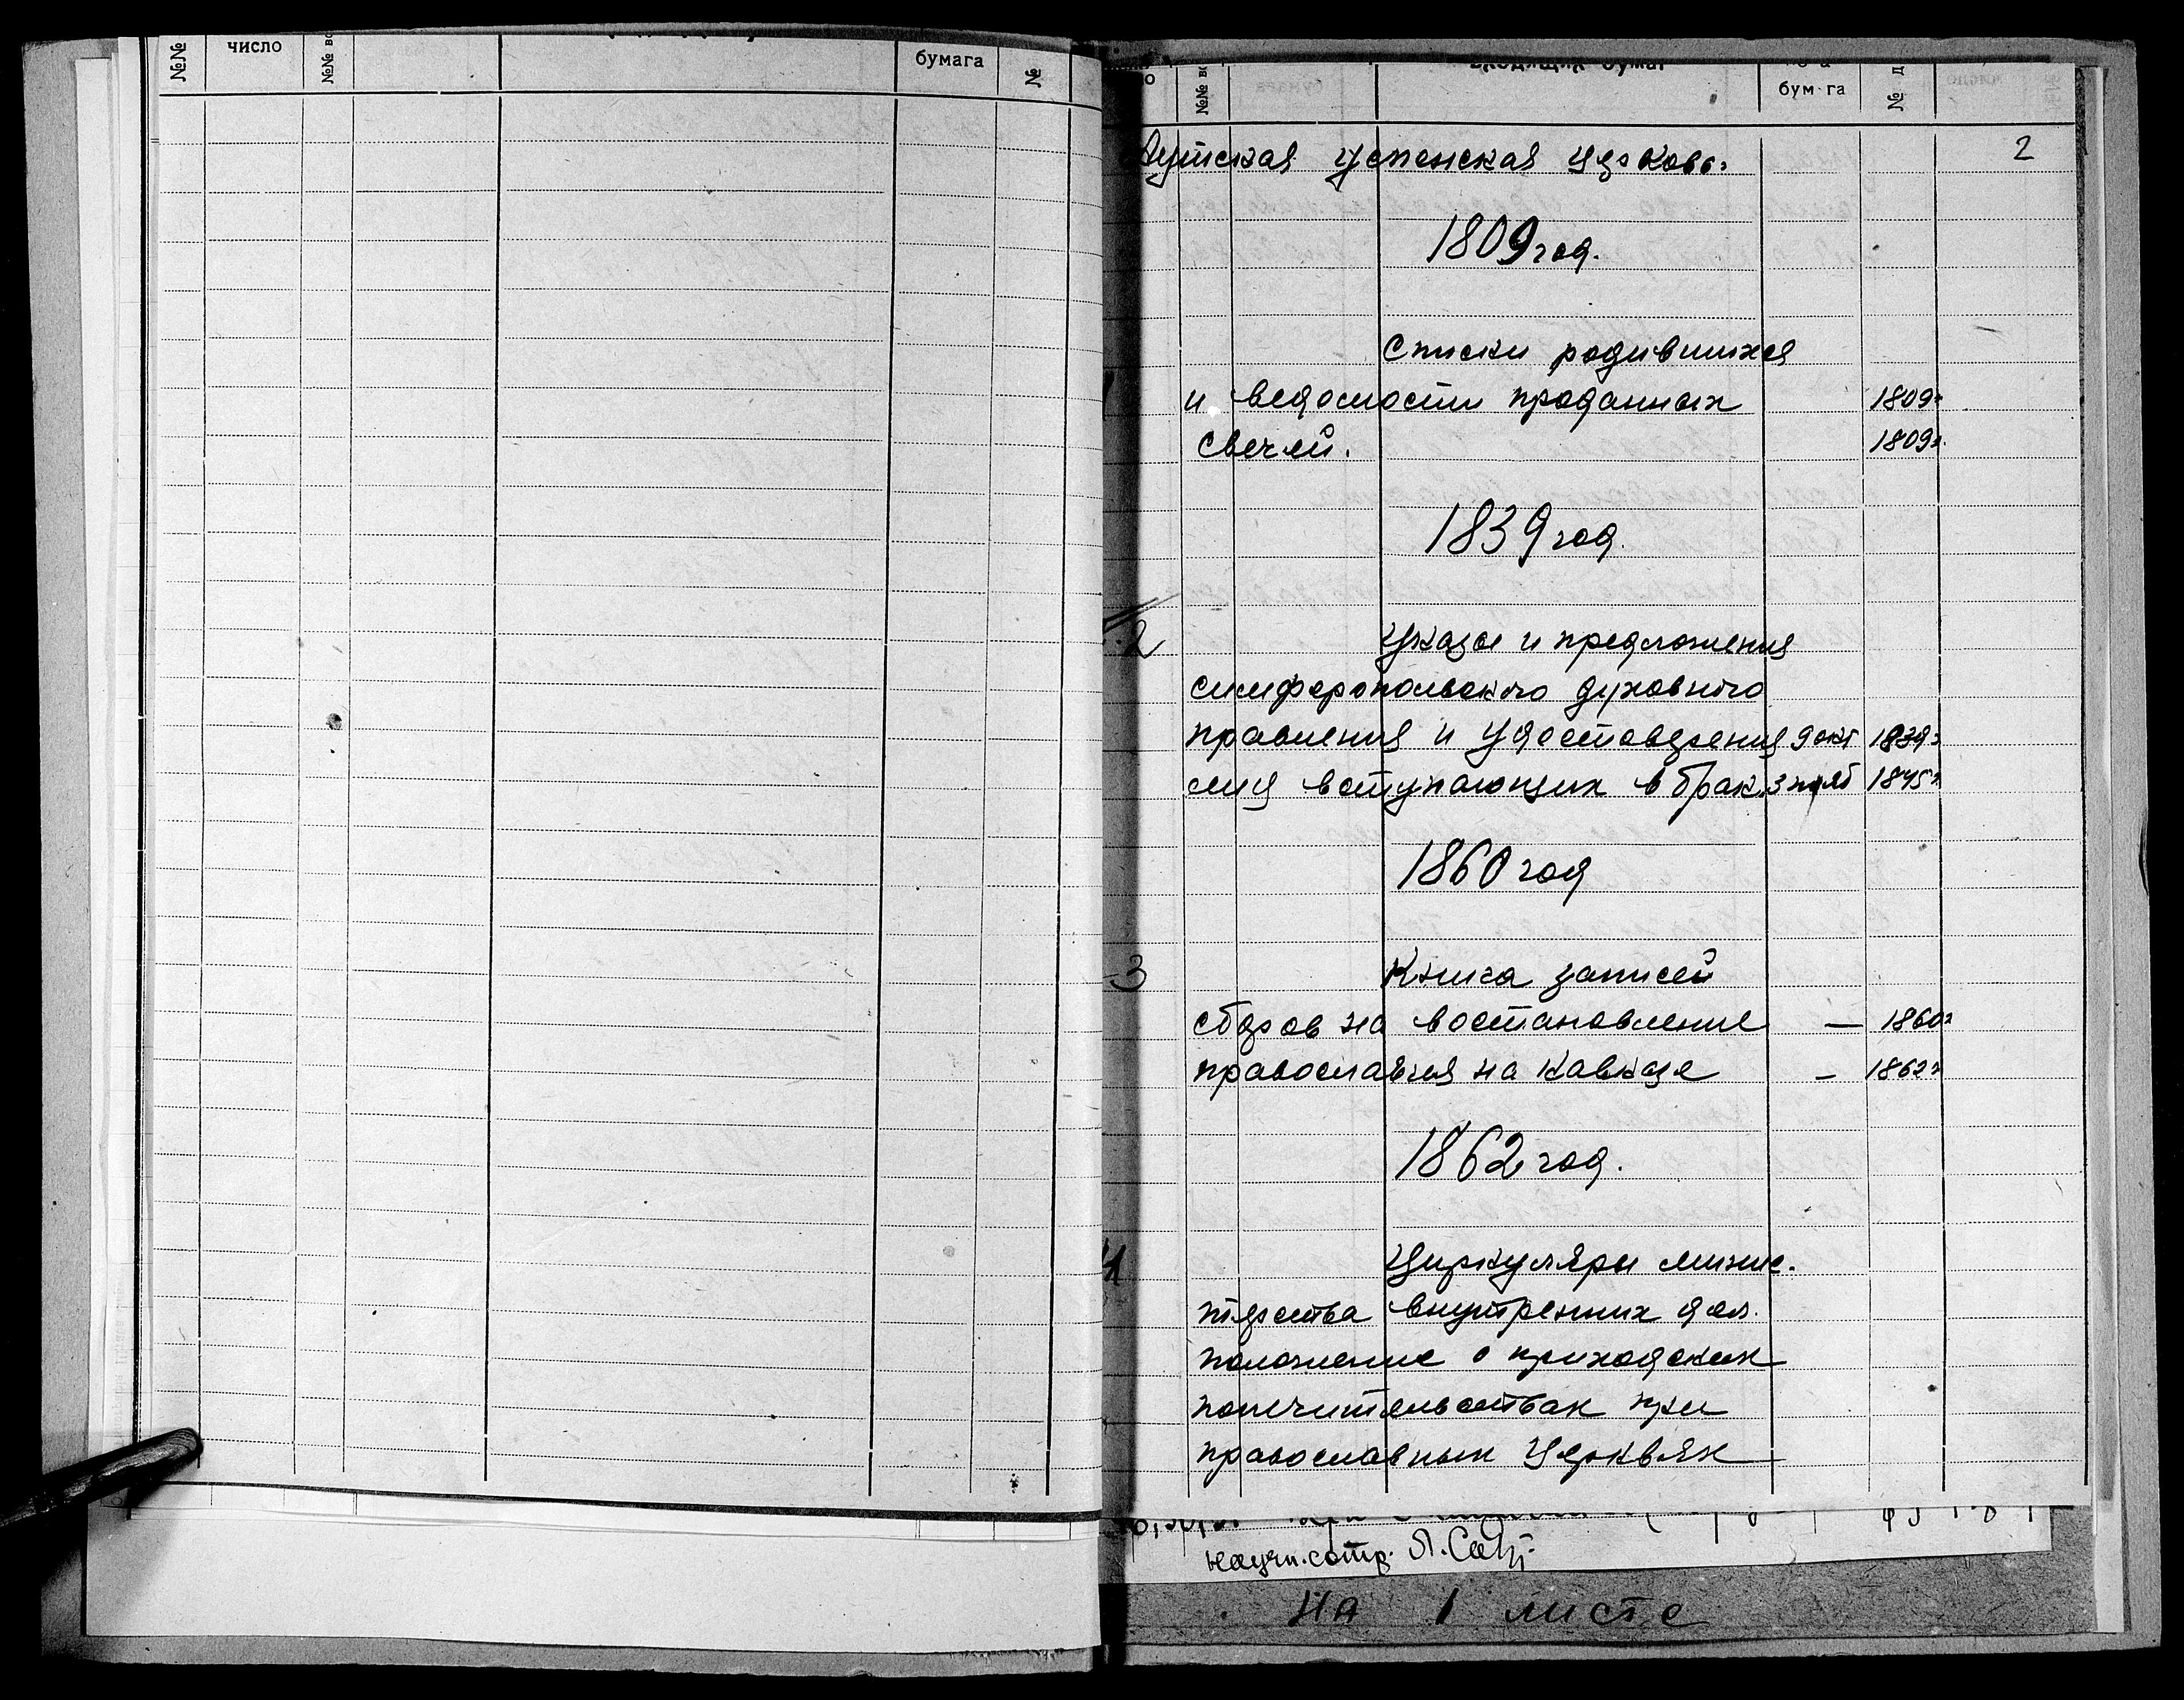 №№
число
№№
бумага
№
№№
входящих бумаг
бум га
№
2
Аутская успенская церковь
1809 год.
Списки родившихся
и ведомости проданных 1809г
свечей. 1809г.
1839 год.
2 Указы и предложения
симферопольского духовного
правления и удостоверения 9 окт 1839г
лиц вступающих в брак. 3 1845г.
1860 год
3 Книга записей
сборов на востановление — 1860г
православия на Кавказе — 1862г
1862 год.
4 Циркуляры минис.
терства внутренних дел.
положение о приходских
попечительствах при
православных церквях
научн. сотр.
на 1 листе